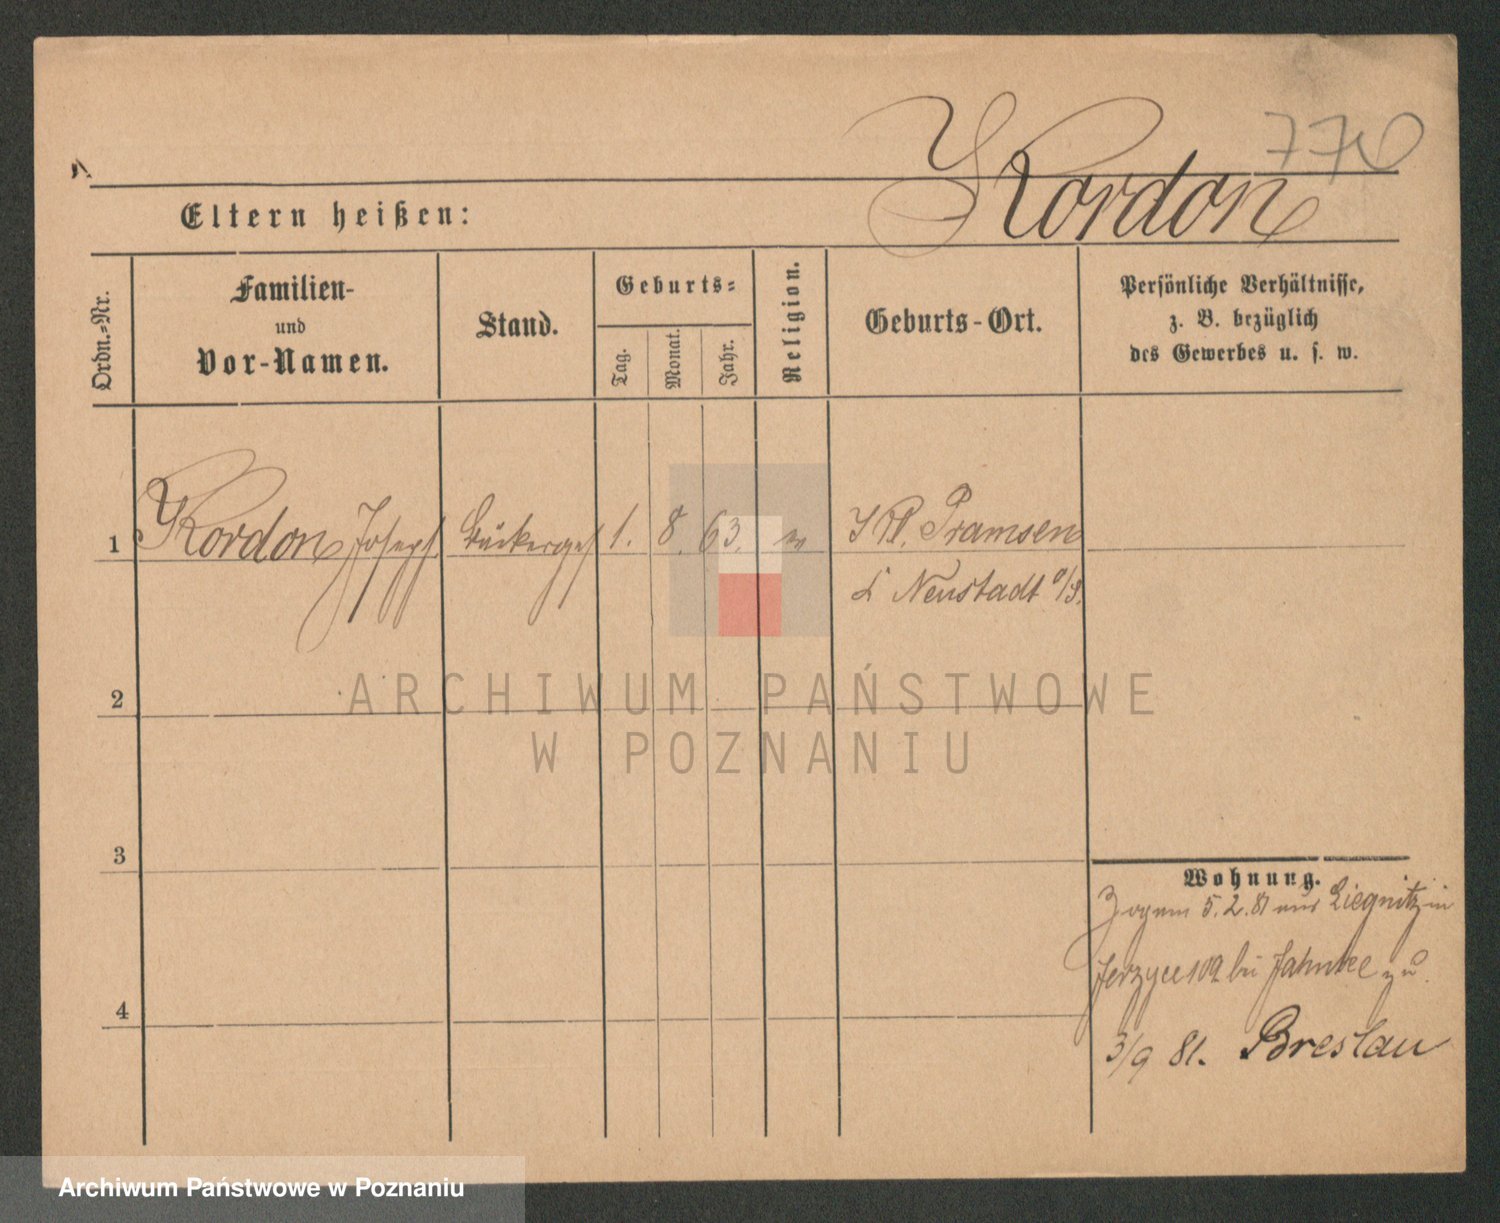 776
Kordon
Eltern heißen:
Ordn.=Nr.
Familien-
und
Vor-Namen.
Stand.
Geburts=
Tag.
Monat.
Jahr.
Religion.
Geburts-Ort.
Persönliche Verhältnisse,
z. B. bezüglich
des Gewerbes u. s. w.
1
Kordon Joseph
Bäckerges
1.
8.
63.
Kl. Pramsen
Neustadt o/S.
ARCHIWUM PAŃSTWOWE
W POZNANIU
2
3
4
Wohnung.
Zog am 5.2.81 aus Liegnitz in
Jerzyce 109 bei Jahnke zu.
3/9 81. Breslau
Archiwum Państwowe w Poznaniu